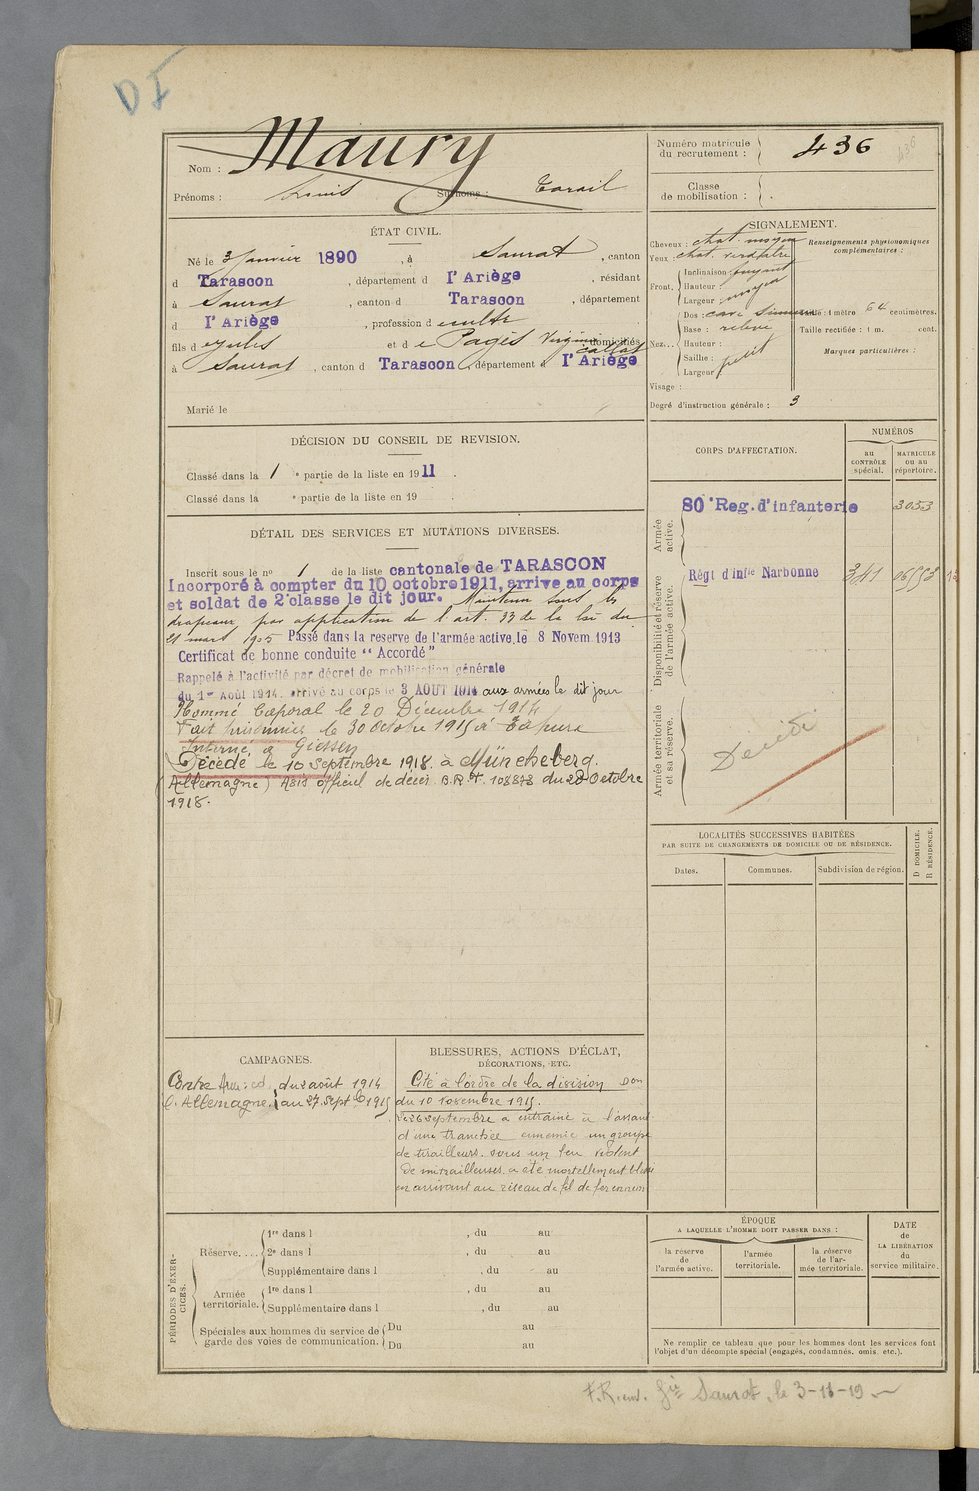 D I
Nom : Maury
Prénoms : Louis Surnoms : Torail
ÉTAT CIVIL.
Né le 3 Janvier 1890, à Saurat, canton
d Tarascon, département d l'Ariège, résidant
à Saurat, canton d Tarascon, département
d l'Ariège, profession d
fils d e Jules et d e Pagès Virginie domiciliés
à Saurat, canton d Tarascon, département d l'Ariège
Marié le
DÉCISION DU CONSEIL DE REVISION.
Classé dans la 1 e partie de la liste en 1911.
Classé dans la e partie de la liste en 19 .
DÉTAIL DES SERVICES ET MUTATIONS DIVERSES.
Inscrit sous le no 1 de la liste cantonale de TARASCON
Incorporé à compter du 10 octobre 1911, arrivé au corps
et soldat de 2e classe le dit jour. Maintenu sous les
drapeaux par application de l'art. 33 de la loi du
21 mars 1905 Passé dans la reserve de l'armée active, le 8 Novem. 1913
Certificat de bonne conduite "Accordé"
Rappelé à l'activité par décret de mobilisation générale
du 1er Août 1914. arrivé au corps le 3 AOUT 1914 aux armées le dit jour
Nommé Caporal le 20 Décembre 1914
Fait prisonnier le 30 octobre 1915 à Tahure
Interné à Giessen
Décédé le 10 septembre 1918 à Müncheberg.
(Allemagne) Avis officiel de décès B.R.T. 108373 du 28 Octobre
1918.
CAMPAGNES.
Contre du 2 août 1914
l'Allemagne. au 27 Sept. 1915
BLESSURES, ACTIONS D'ÉCLAT,
DÉCORATIONS, ETC.
Cité à l'ordre de la division Don
du 10 novembre 1915.
Le 26 septembre a entrainé à l'assaut
d'une tranchée ennemie un groupe
de tirailleurs sous un feu violent
de mitrailleuses a été mortellement blessé
en arrivant au réseau de fil de fer ennemi
PÉRIODES D'EXERCICES.
Réserve.... 1re dans l , du au
2e dans l , du au
Supplémentaire dans l , du au
Armée territoriale. 1re dans l , du au
Supplémentaire dans l , du au
Spéciales aux hommes du service de Du au
garde des voies de communication. Du au
Numéro matricule
du recrutement : 436
436
Classe
de mobilisation : .
SIGNALEMENT.
Cheveux : chat. moyen
Yeux : chat. verdâtre
Front. Inclinaison : fuyant
Hauteur :
Largeur : moyen
Nez... Dos : cave sinueux
Base : relevé
Hauteur :
Saillie : petit
Largeur
Visage :
Degré d'instruction générale : 3
Renseignements physionomiques
complémentaires :
Taille : 1 mètre 64 centimètres.
Taille rectifiée : 1 m. cent.
Marques particulières :
CORPS D'AFFECTATION.
NUMÉROS
AU CONTRÔLE spécial.
MATRICULE ou au répertoire.
Armée active.
80e Reg. d'infanterie 3053
Disponibilité et réserve de l'armée active.
Régt d'infie Narbonne 341
Armée territoriale et sa réserve.
Décédé
LOCALITÉS SUCCESSIVES HABITÉES
PAR SUITE DE CHANGEMENTS DE DOMICILE OU DE RÉSIDENCE.
Dates. Communes. Subdivision de région. D DOMICILE. R RÉSIDENCE.
ÉPOQUE
A LAQUELLE L'HOMME DOIT PASSER DANS :
la réserve de l'armée active.
l'armée territoriale.
la réserve de l'armée territoriale.
DATE de LA LIBÉRATION du service militaire.
Ne remplir ce tableau que pour les hommes dont les services font
l'objet d'un décompte spécial (engagés, condamnés, omis, etc.).
Saurat, le 3-11-19